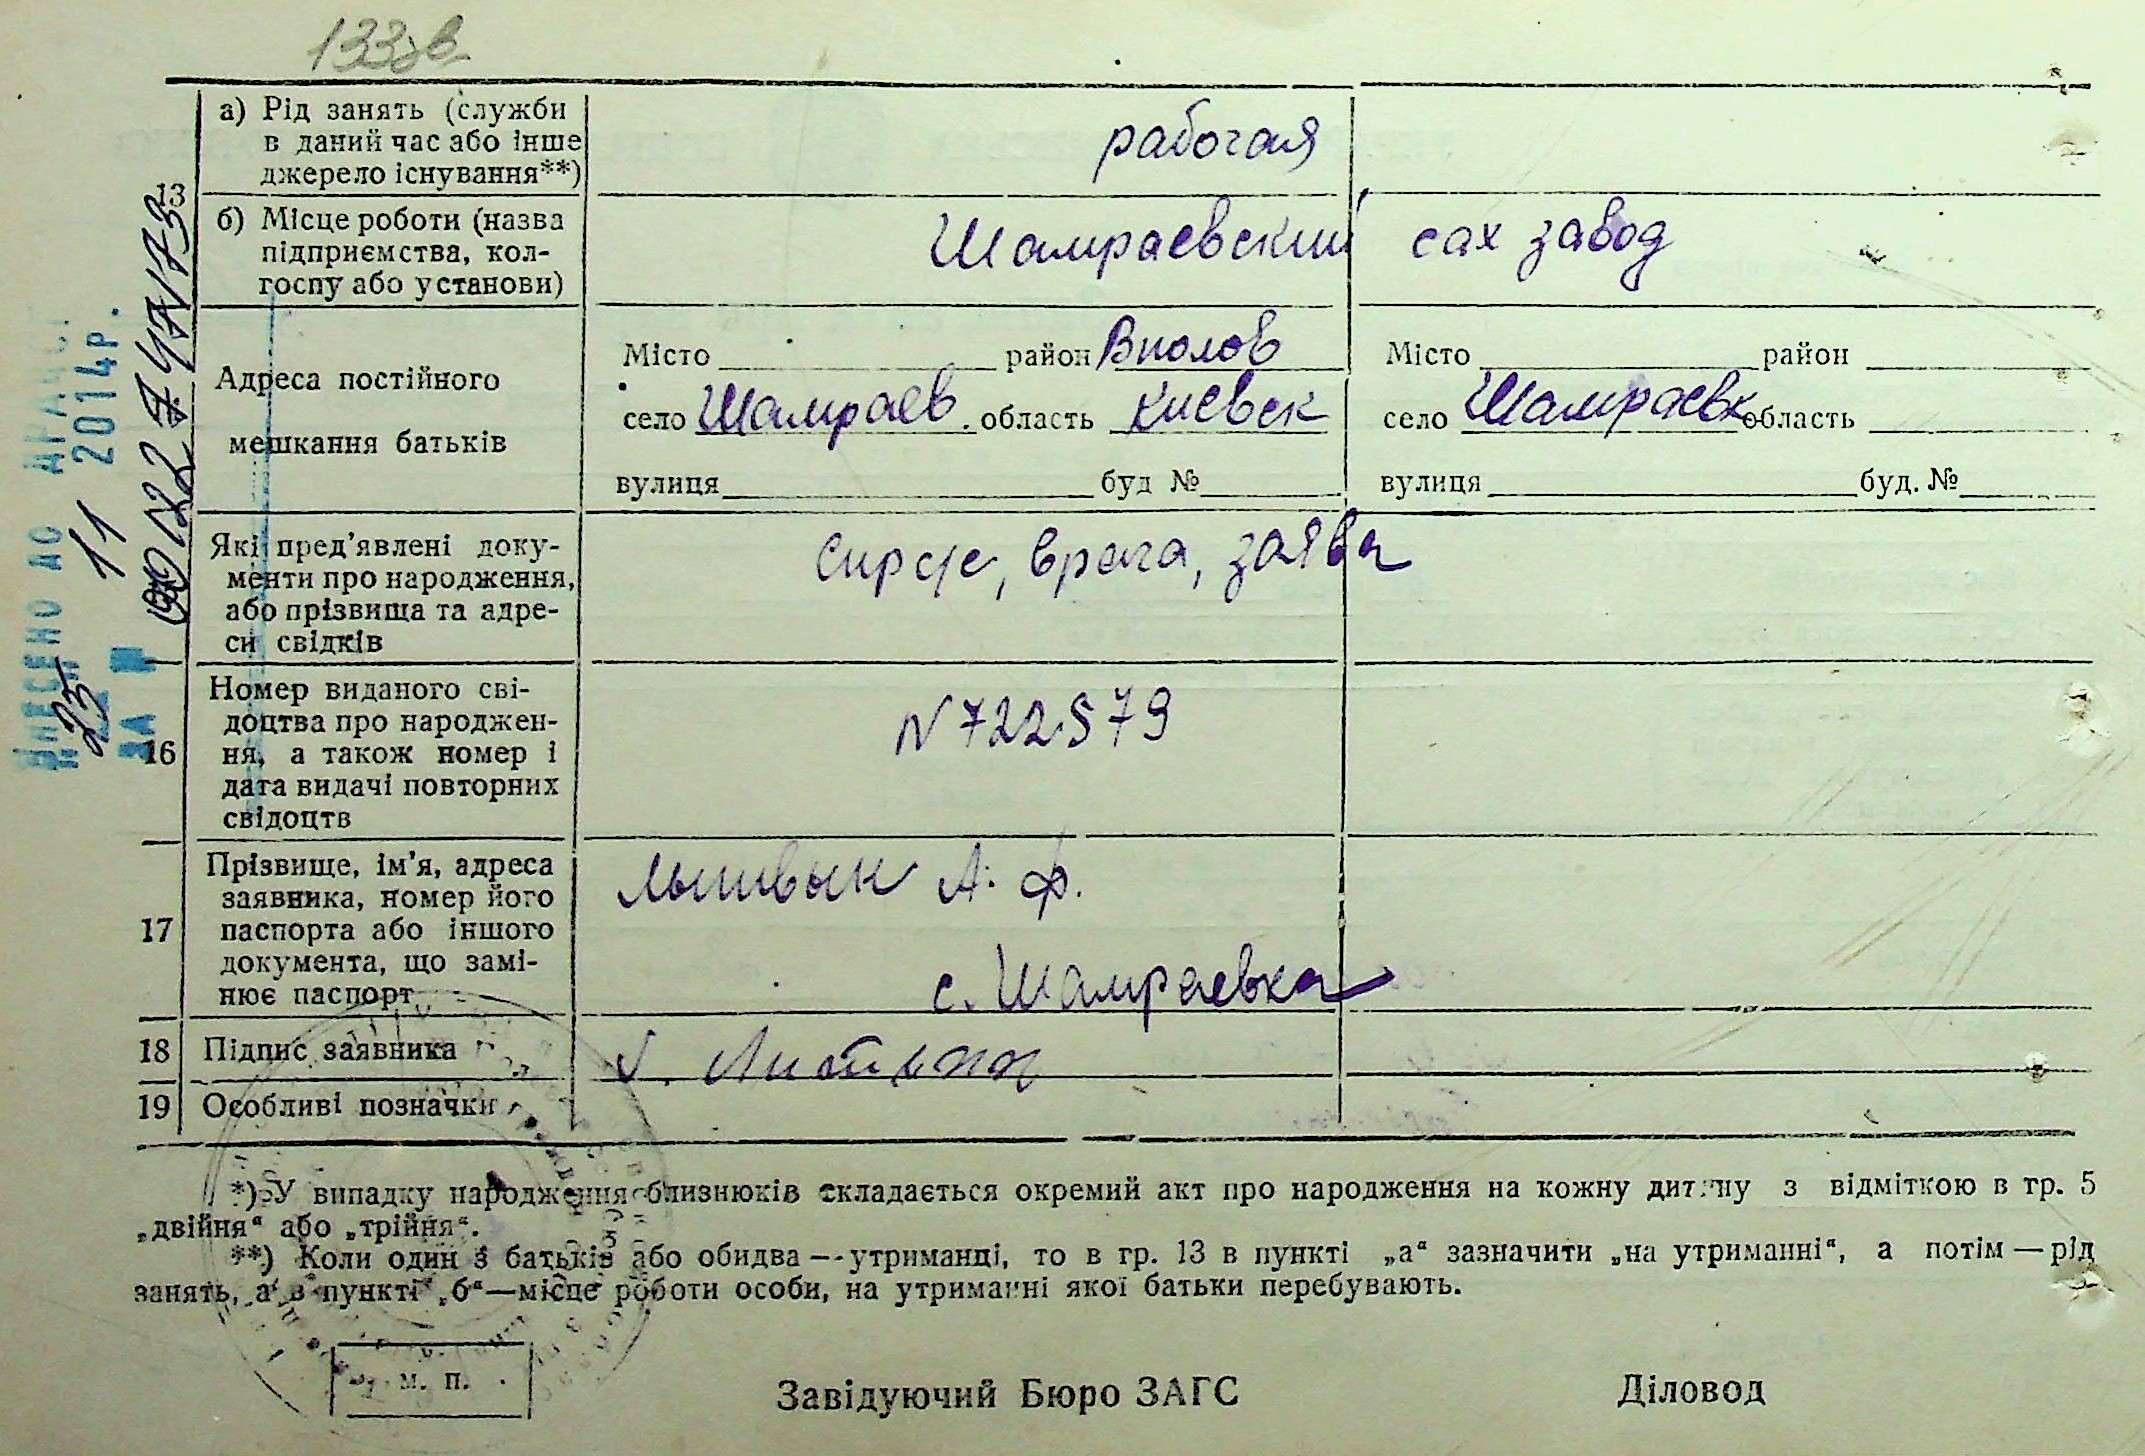 133 зв.
13
а) Рід занять (служби
в даний час або інше
джерело існування**)
рабочая
б) Місце роботи (назва
підприємства, кол-
госпу або установи)
Шамраевский сах завод
Адреса постійного
мешкання батьків
Місто район
село Шамраев. область Киевск
вулиця буд №
Місто район
село Шамраевк область
вулиця буд. №
Які пред’явлені доку-
менти про народження,
або прізвища та адре-
си свідків
врача, заява
16
Номер виданого сві-
доцтва про народжен-
ня, а також номер і
дата видачі повторних
свідоцтв
N 722579
17
Прізвище, ім’я, адреса
заявника, номер його
паспорта або іншого
документа, що замі-
нює паспорт
А. Ф.
с. Шамраевка
18 Підпис заявника
19 Особливі позначки
*) У випадку народження близнюків складається окремий акт про народження на кожну дитину з відміткою в гр. 5
„двійня“ або „трійня“.
**) Коли один з батьків або обидва — утриманці, то в гр. 13 в пункті „а“ зазначити „на утриманні“, а потім — рід
занять, а в пункті „б“—місце роботи особи, на утриманні якої батьки перебувають.
м. п.
Завідуючий Бюро ЗАГС
Діловод
ВНЕСЕНО ДО
23 11 2014р.
ЗА №